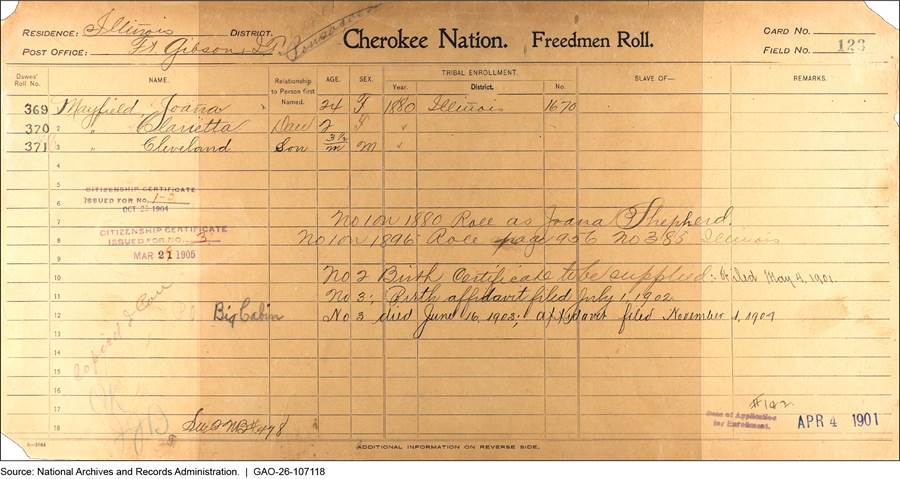 RESIDENCE: Illinois DISTRICT.
POST OFFICE: Ft. Gibson, I.T.
Cherokee Nation. Freedmen Roll.
CARD NO.
FIELD NO. 123
Dawes' Roll No. NAME. Relationship to Person first Named. AGE. SEX. TRIBAL ENROLLMENT. Year. District. No. SLAVE OF— REMARKS.
369 Mayfield Joana 24 F 1880 Illinois 1670
370 2 " Clarietta Dau 2 F "
371 3 " Cleveland Son 3/12 m M "
4
5
6
7
8
9
10
11
12
13
14
15
16
17
18
CITIZENSHIP CERTIFICATE
ISSUED FOR NO. 1-2
OCT 1904
CITIZENSHIP CERTIFICATE
ISSUED FOR NO. 3
MAR 21 1905
No 1 on 1880 Roll as Joana Shepherd.
No 1 on 1896 Roll page 956 No 385 Illinois
No 2 Birth Certificate to be supplied: Filed May 4, 1901.
No 3; Birth affidavit filed July 1, 1902
No 3 died June 16, 1903; affidavit filed November 1, 1904
Big Cabin
#142
Date of Application
for Enrollment.
APR 4 1901
ADDITIONAL INFORMATION ON REVERSE SIDE.
Source: National Archives and Records Administration. | GAO-26-107118